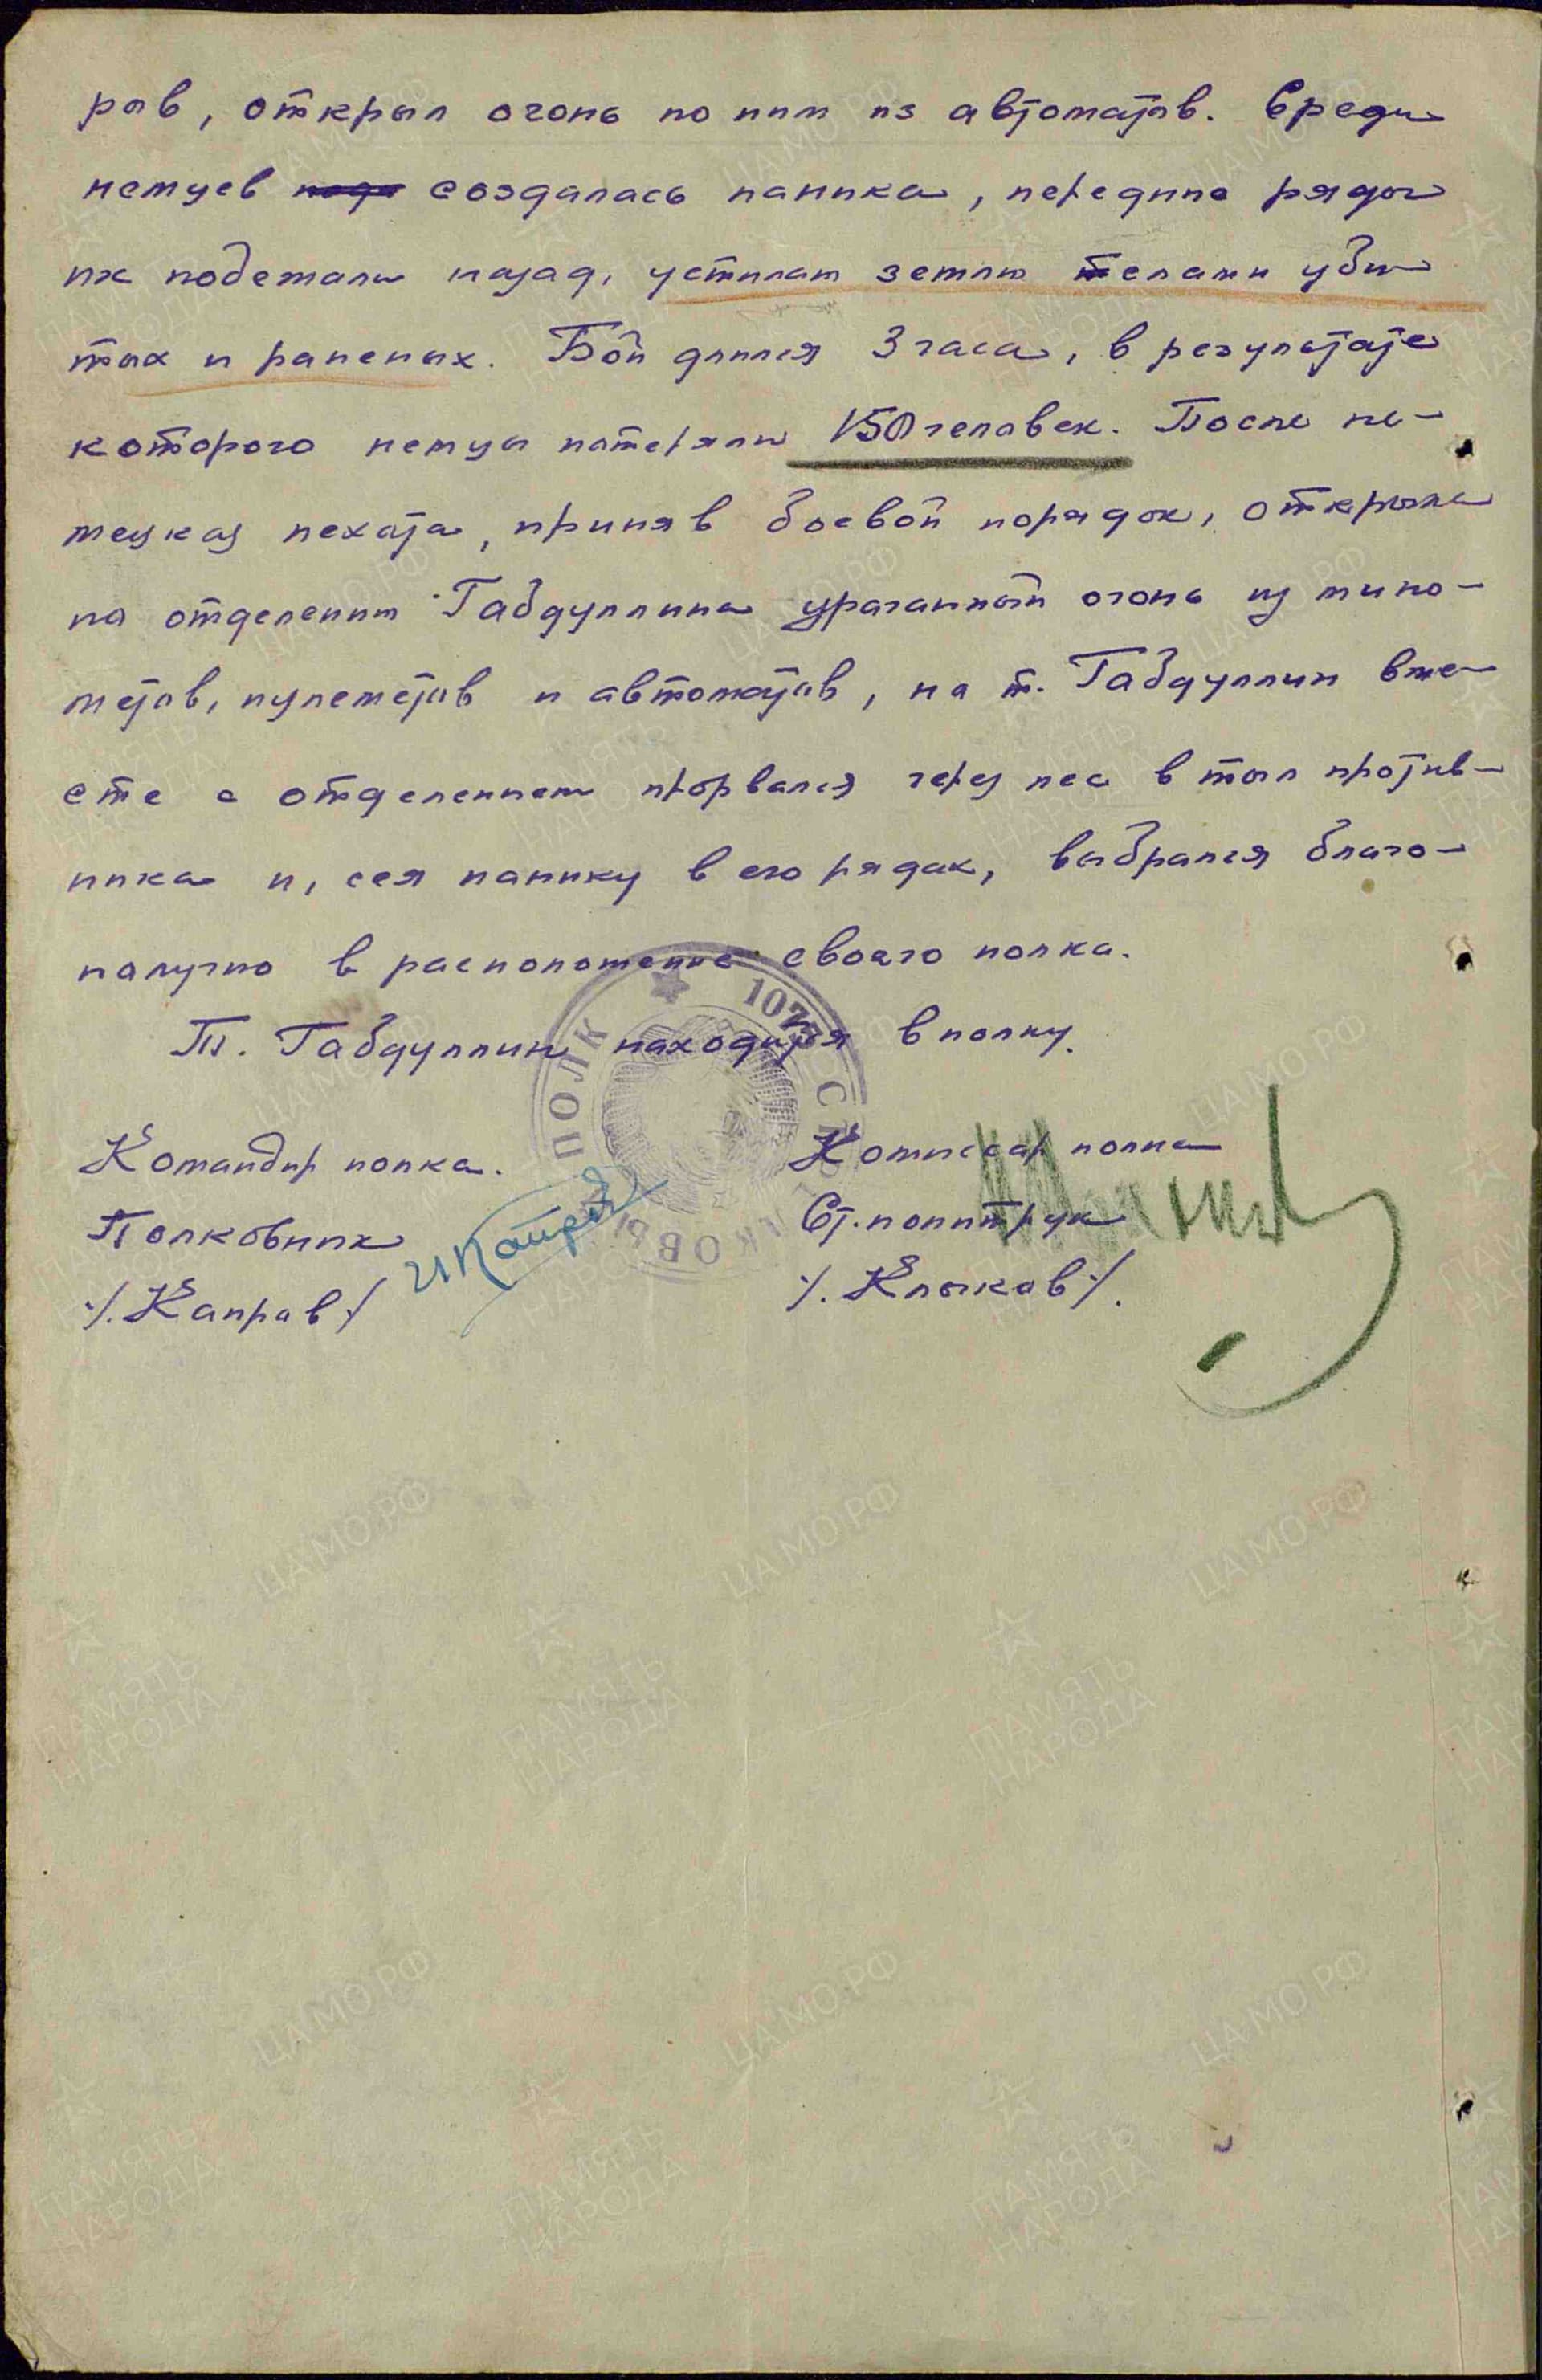 ров, открыл огонь по ним из автоматов. Среди
немцев создалась паника, передние ряды
их побежали назад, устилая землю телами уби
тых и раненых. Бой длился 3 часа, в результате
которого немцы потеряли 150 человек. После не-
мецкая пехота, приняв боевой порядок, открыла
на отделение Габдуллина ураганный огонь из мино-
метов, пулеметов и автоматов, но т. Габдуллин вме
сте с отделением прорвался через лес в тыл против-
ника и, сея панику в его рядах, выбрался благо-
получно в расположение своего полка.
Т. Габдуллин находится в полку.
Командир полка.
Полковник
/. Капров /
Комиссар полка
Ст. политрук
/. Клыков /.
ПОЛК
107
ЦАМО.РФ
ПАМЯТЬ
НАРОДА